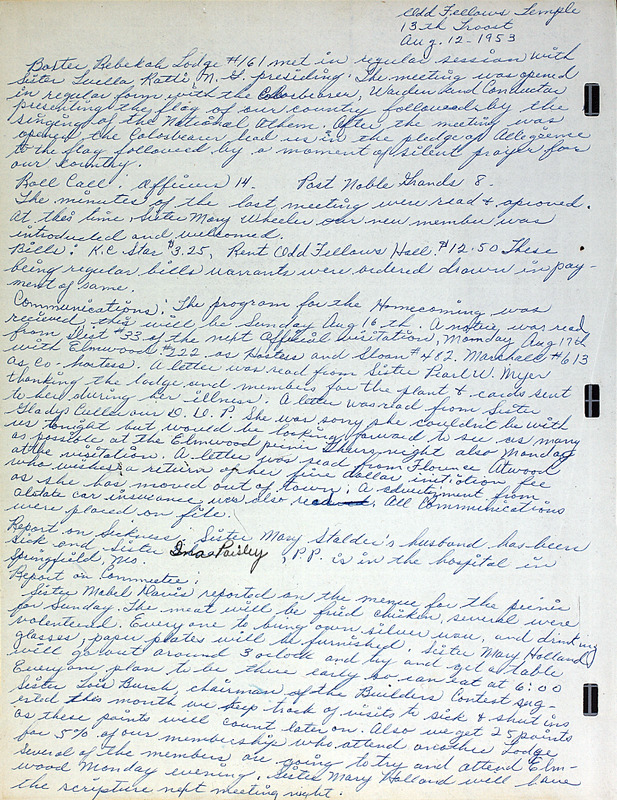 Odd Fellows Temple
13th Troost
Aug. 12-1953
Baxter Rebekah Lodge #161 met in regular session with
Sister Luella Ratti N.G. presiding. The meeting was opened
in regular form with the Colorbearer, Warden and Conductor
presenting the flag of our country followed by the
singing of the National Athem. After the meeting was
opened the Colorbearer lead us in the pledge of Allegiance
to the flag followed by a moment of silent prayer for
our Country.
Roll Call: Officers 14. Past Noble Grands 8.
The minutes of the last meeting were read & aproved.
At this time Sister Mary Wheeler our new member was
introduced and welcomed.
Bills: K.C Star $3.25, Rent Odd Fellows Hall. $12.50 These
being regular bills warrants were ordered drawn in pay-
ment of same.
Communications: The program for the Homecoming was
recieved this will be Sunday Aug 16th. A notice was read
from Dist #33 of the next Official visitation, Monday Aug 17th
with Elmwood #222 as hostess and Sloan #482. Marshall #613
as co-hostess. A letter was read from Sister Pearl W. Myer
thanking the lodge and members for the plant & cards sent
to her during her illness. A letter was read from Sister
Gladys Culler our D.D.P. She was sorry she couldn't be with
us tonight but would be looking forward to see as many
as possible at the Elmwood picnic Thurs. night also Monday
at the visitation. A letter was read from Florence Atwood
who wishes a return of her five dollar initiation fee
as she has moved out of town. A advertizment from
Alstate car insurance was also read. All Communications
were placed on file.
Report on Sickness: Sister Mary Stalder's husband has been
sick and Sister Ina Paisley, P.P. is in the hospital in
Springfield, Mo.
Report on Commitee:
Sister Mabel Davis reported on the menue for the picnic
for Sunday. The meat will be fried chicken, several were
volentered. Everyone to bring own silver ware, and drinking
glasses, paper plates will be furnished. Sister Mary Holland
will go out around 3 oclock and try and get a table
Everyone plan to be there early so can eat at 6:00
Sister Lois Burch, chairman of the Builders Contest sug-
ested this month we keep track of visits to sick & shut ins
as these points will count later on. Also we get 25 points
for 5% of our membership who attend another Lodge
Several of the members are going to try and attend Elm-
wood Monday evening. Sister Mary Holland will have
the scripture next meeting night.